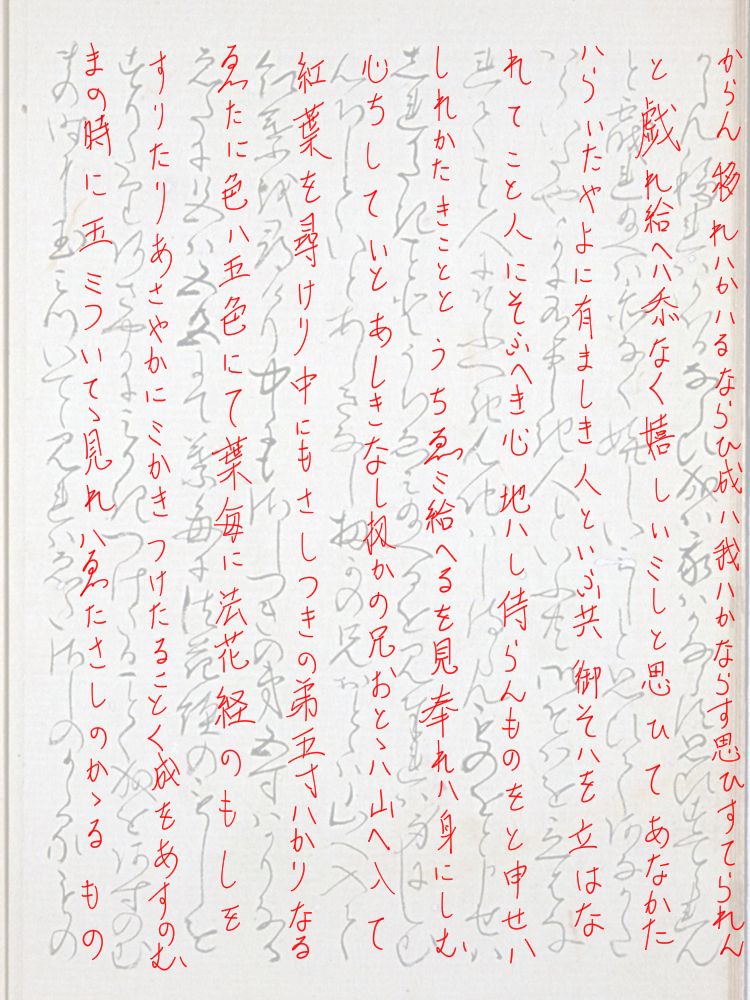 からん移れハかハるならひ成ハ我ハかならす思ひすてられん
と戯れ給へハ忝なく嬉しいミしと思ひてあなかた
ハらいたやよに有ましき人といふ共御そハを立はな
れてこと人にそふへき心地ハし侍らんものをと申せハ
しれかたきことゝうちゑミ給へるを見奉れハ身にしむ
心ちしていとあしきなし扨かの兄おとゝハ山へ入て
紅葉を尋けり中にもさしつきの弟五寸ハかりなる
ゑたに色ハ五色にて葉毎に法花経のもしを
すりたりあさやかにミかきつけたることく成をあすのむ
まの時に王ミついてゝ見れハゑたさしのかゝるもの